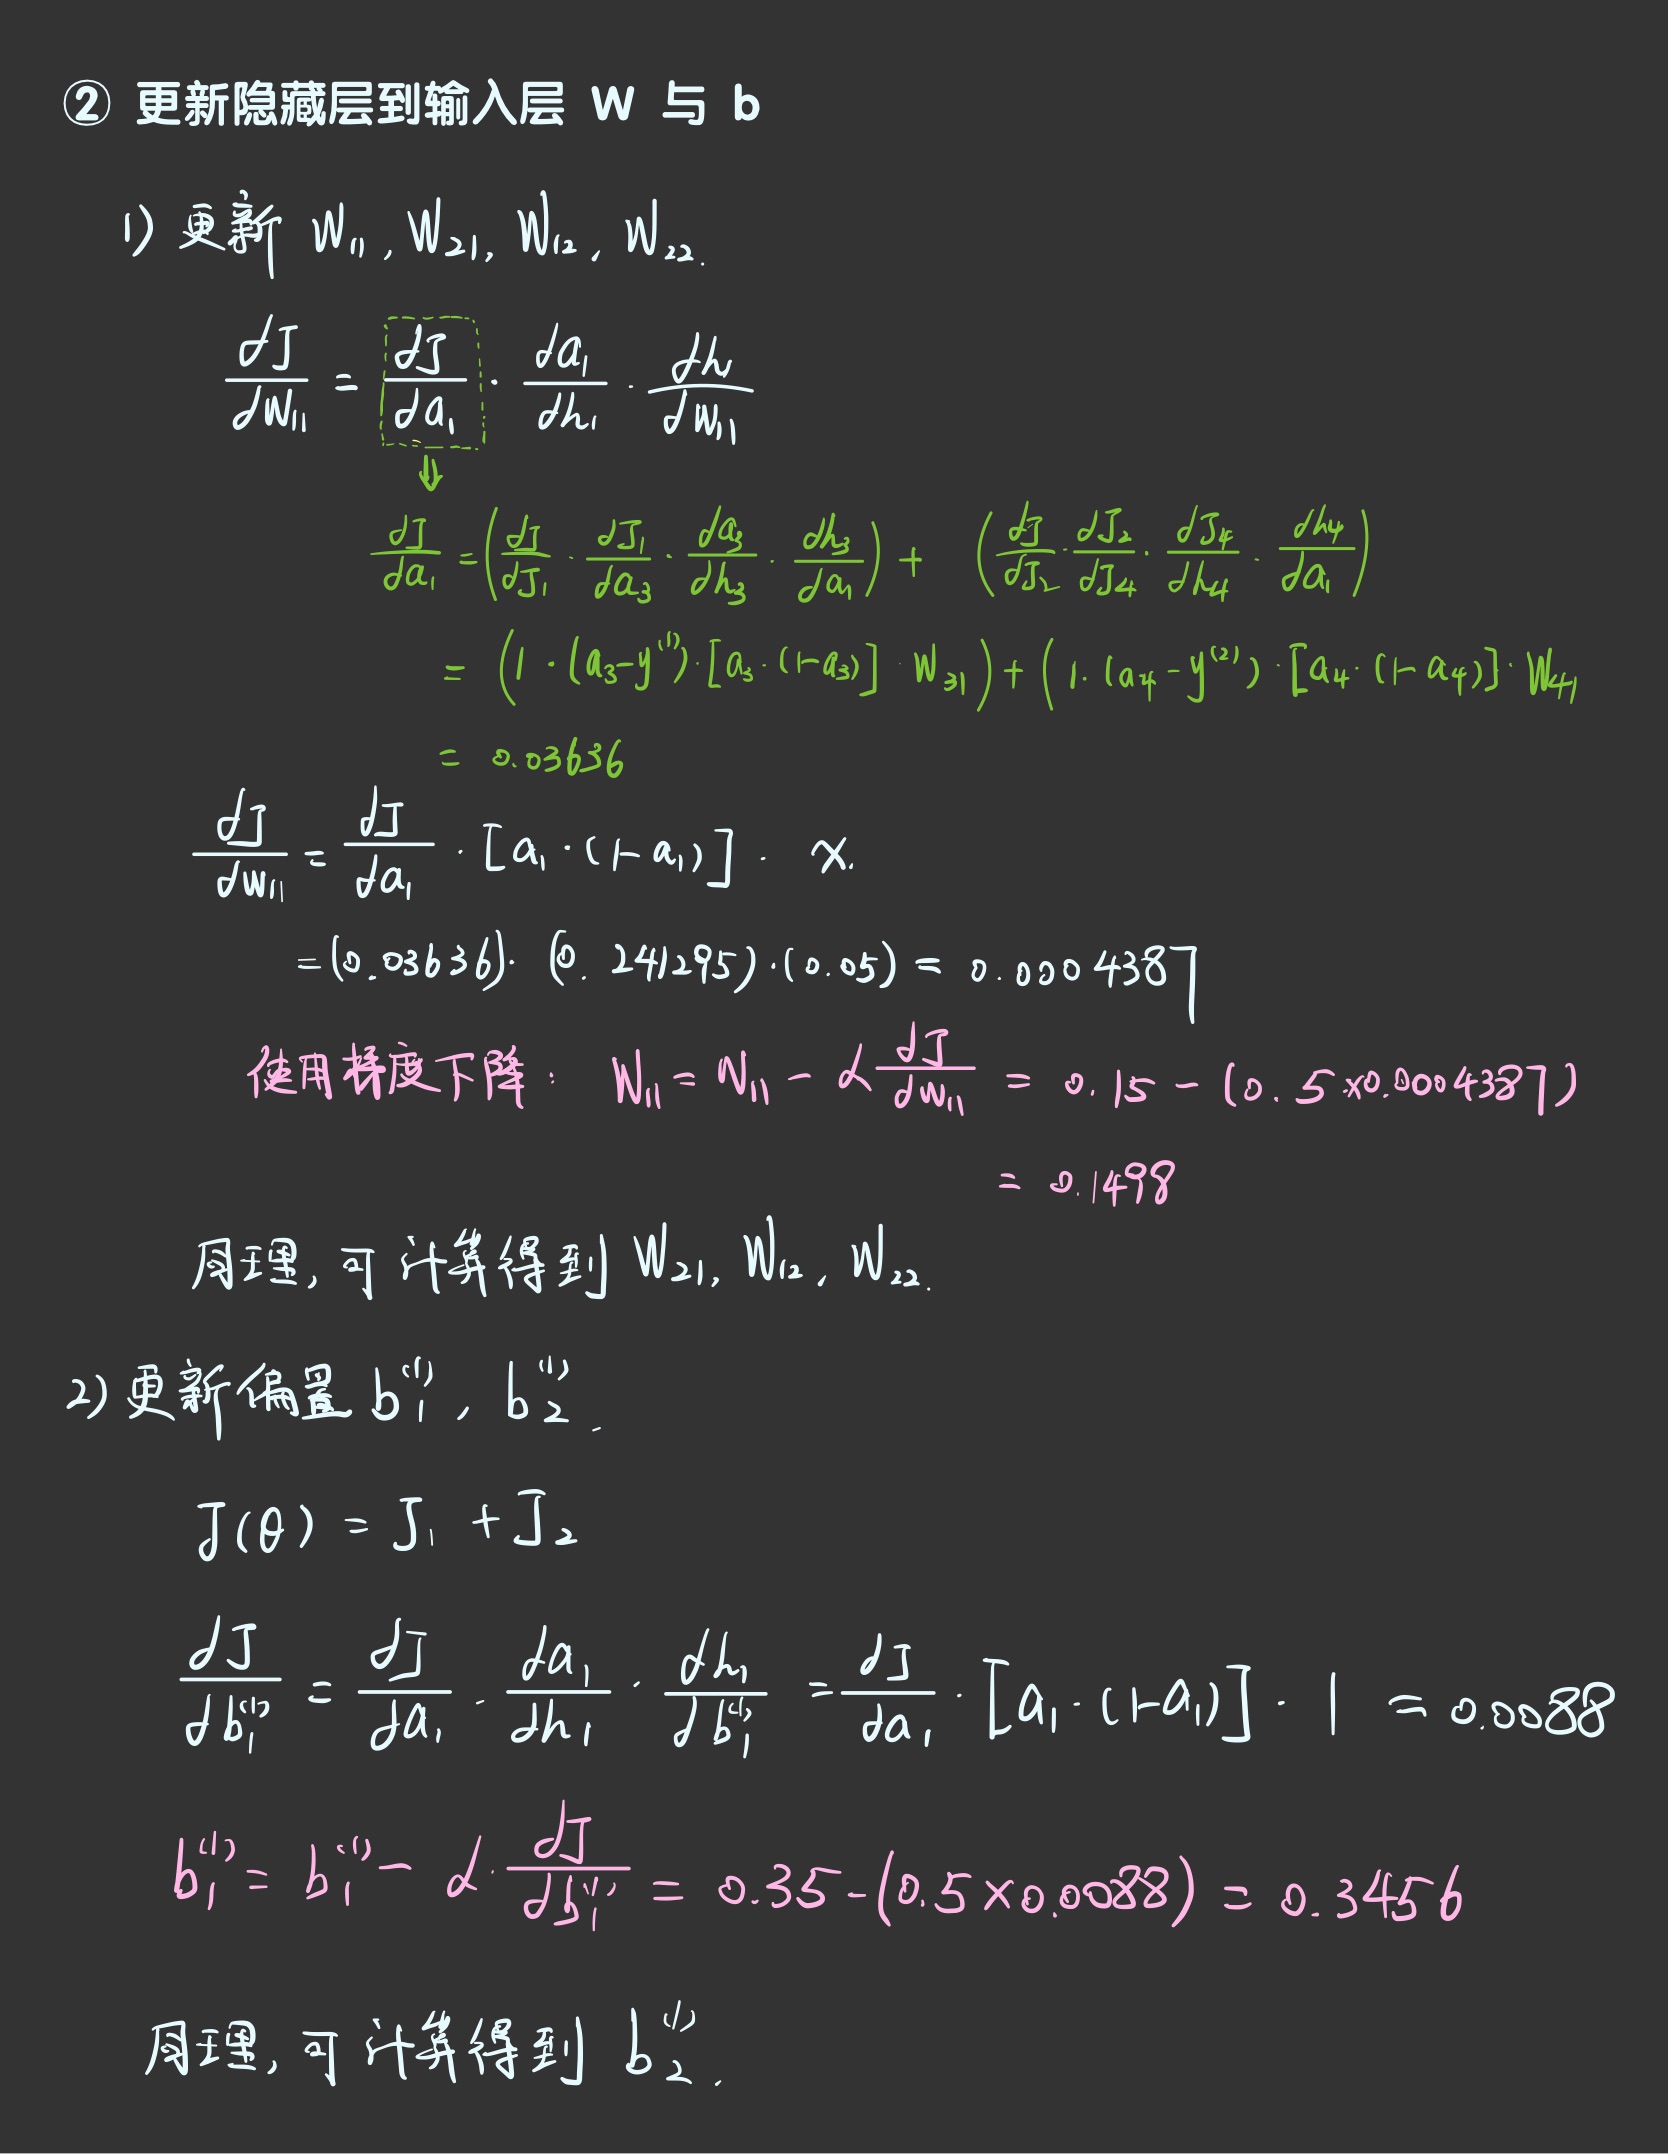 ② 更新隐藏层到输入层 W 与 b
1) 更新 W₁₁, W₂₁, W₁₂, W₂₂.
dJ/dW₁₁ = dJ/da₁ · da₁/dh₁ · dh₁/dW₁₁
↓
dJ/da₁ = (dJ/dJ₁ · dJ₁/da₃ · da₃/dh₃ · dh₃/da₁) + (dJ/dJ₂ · dJ₂/dJ₄ · dJ₄/dh₄ · dh₄/da₁)
= (1 · (a₃-y⁽¹⁾) · [a₃ · (1-a₃)] · W₃₁) + (1 · (a₄-y⁽²⁾) · [a₄ · (1-a₄)] · W₄₁
= 0.03636
dJ/dW₁₁ = dJ/da₁ · [a₁ · (1-a₁)] · x.
= (0.03636) · (0.241295) · (0.05) = 0.0004387
使用梯度下降: W₁₁ = W₁₁ - α dJ/dW₁₁ = 0.15 - (0.5×0.0004387)
= 0.1498
同理, 可计算得到 W₂₁, W₁₂, W₂₂.
2) 更新偏置 b₁⁽¹⁾, b₂⁽¹⁾.
J(θ) = J₁ + J₂
dJ/db₁⁽¹⁾ = dJ/da₁ · da₁/dh₁ · dh₁/db₁⁽¹⁾ = dJ/da₁ · [a₁ · (1-a₁)] · 1 = 0.0088
b₁⁽¹⁾ = b₁⁽¹⁾ - α · dJ/db₁⁽¹⁾ = 0.35-(0.5×0.0088) = 0.3456
同理, 可计算得到 b₂⁽¹⁾.